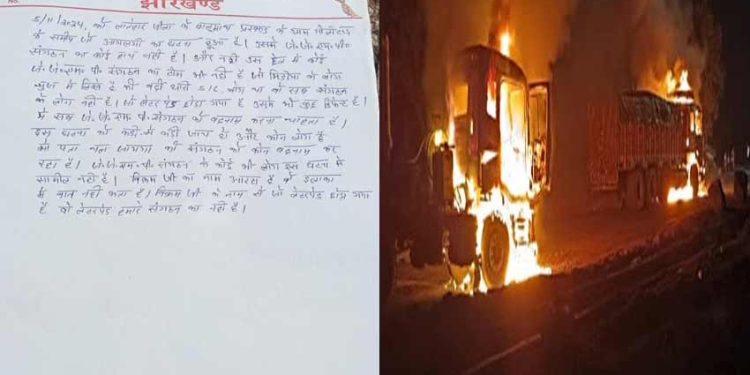 झारखण्ड
No.
5/11/2024, को लातेहार जीला के बालुमाथ प्रखण्ड के ग्राम
के समीप जो आगजनी का घटना हुआ है। इसमें जे.जे.एम.पी०
संगठन का कोई हाथ नहीं है। और नही इस क्षेत्र में कोई
जे.जे.एम.पी संगठन का टीम भी नही है जो मिडीया के लोग
न्युज में लिखे है की बड़ी वाली S/C लोग था वो सब संगठन
के लोग नहीं है। जो लेटरपैड छोड़ा गया है उसमें भी कुछ है।
ये सब जे.जे.एम.पी.संगठन को बदनाम करना चाहता है।
इस घटना की कड़ी से कड़ी जांच हो और कौन लोग है
वो पता चल जाएगा की संगठन को कौन बदनाम कर
रहा है। जे.जे.एम.पी संगठन के कोई भी लोग इस घटना में
सामील नही है। विक्रम जी का नाम आरहा है वे इलाका
में काम नही करते है। विक्रम जी के नाम से जो लेटरपैड छोड़ा गया
है वो लेटरपैड हमारे संगठन का नहीं है।